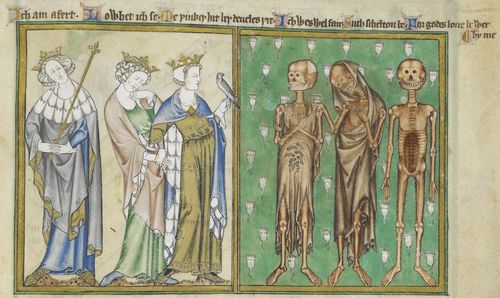 Ich am afert. Lo whet ich se. Me þinkeþ hit beþ deueles þre. Ich wes wel fair. Such scheltou be. For godes loue be wer
By me